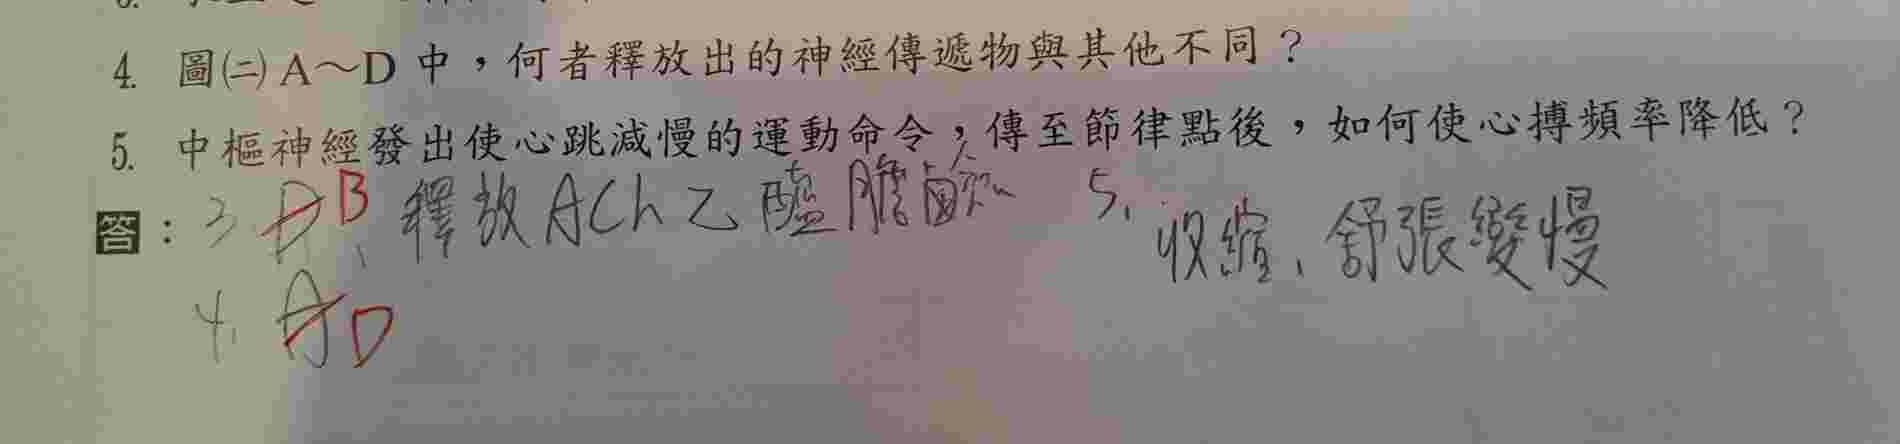 4. 圖㈡A～D中，何者釋放出的神經傳遞物與其他不同？
5. 中樞神經發出使心跳減慢的運動命令，傳至節律點後，如何使心搏頻率降低？
答：3. D B、釋放ACh乙醯膽鹼 5. 收縮、舒張變慢
4. A D